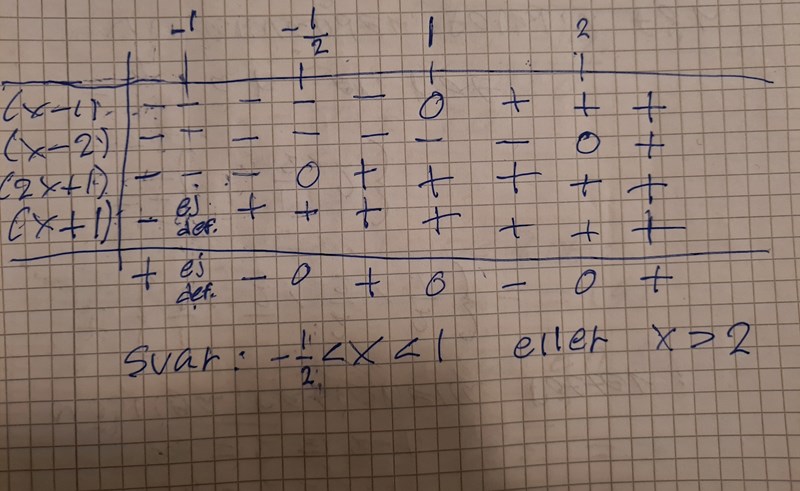 -1 -1/2 1 2
(x-1) - - - - - 0 + + +
(x-2) - - - - - - - 0 +
(2x+1) - - - 0 + + + + +
(x+1) - ej def. + + + + + + +
+ ej def. - 0 + 0 - 0 +
Svar: -1/2 < x < 1 eller x > 2